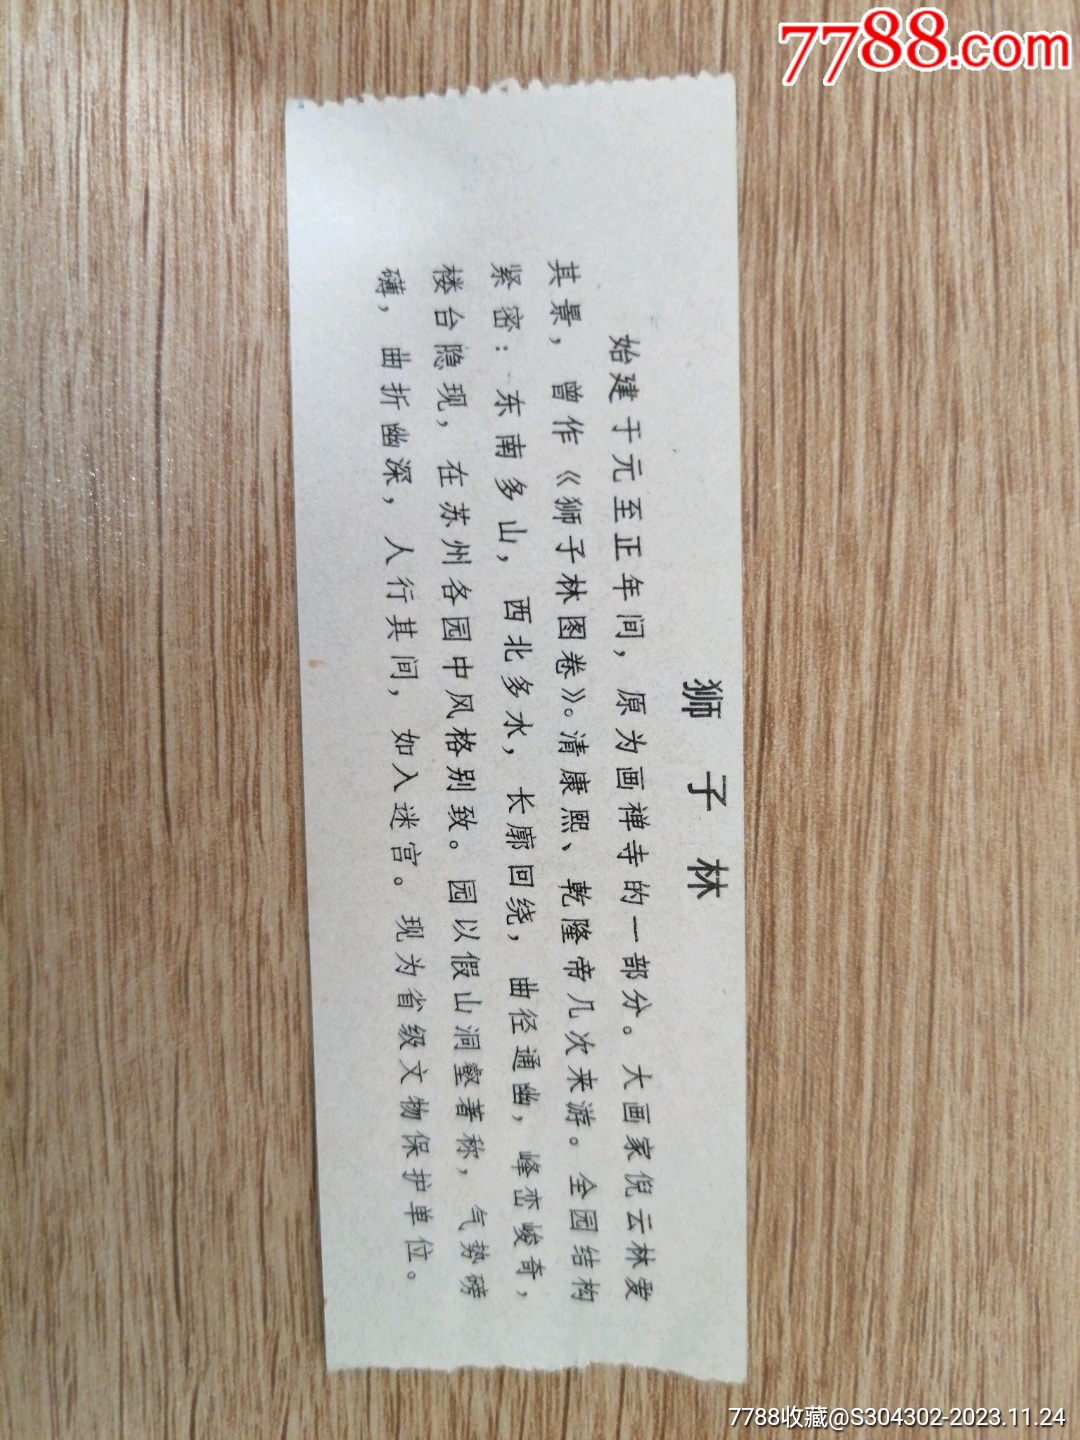 7788.com
狮子林
始建于元至正年间，原为画禅寺的一部分。大画家倪云林爱
其景，曾作《狮子林图卷》。清康熙、乾隆帝几次来游。全园结构
紧密：东南多山，西北多水，长廓回绕，曲径通幽，峰峦峻奇，
楼台隐现，在苏州各园中风格别致。园以假山洞壑著称，气势磅
礴，曲折幽深，人行其间，如入迷宫。现为省级文物保护单位。
7788收藏@S304302-2023.11.24